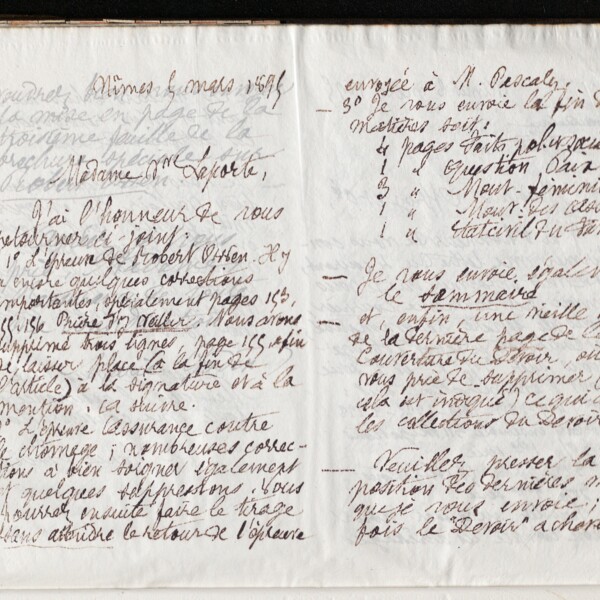 Nîmes 5 mars 1895
Madame Vve Laporte,
J'ai l'honneur de vous
retourner ci-joint:
1° L'épreuve de Robert Owen. Il y
a encore quelques corrections
importantes, spécialement pages 153,
155, 156 Prière d'y veiller. Nous avons
supprimé trois lignes, page 155, afin
de laisser place (à la fin de
l'article) à la signature et à la
mention: (à suivre.
2° L'épreuve Assurance contre
le chômage; nombreuses correc-
tions à bien soigner également
et quelques suppressions. Vous
pourrez ensuite faire le tirage
sans attendre le retour de l'épreuve
envoyée à M. Pascaly.
3° Je vous envoie la fin de
matières soit:
4 pages Faits polit. soc
1 " Question Paix
3 " Mouv. féminis
1 " Mouv. des
1 " Etat civil du Fam
— Je vous envoie égale
le sommaire
— et, enfin une vieille
de la dernière page de la
couverture du Devoir, où
vous prie de supprimer
cela est indiqué ce qui
les collections du Devoir
— Veuillez presser la
position des dernières m
que je vous envoie;
fois le "Devoir" achevé